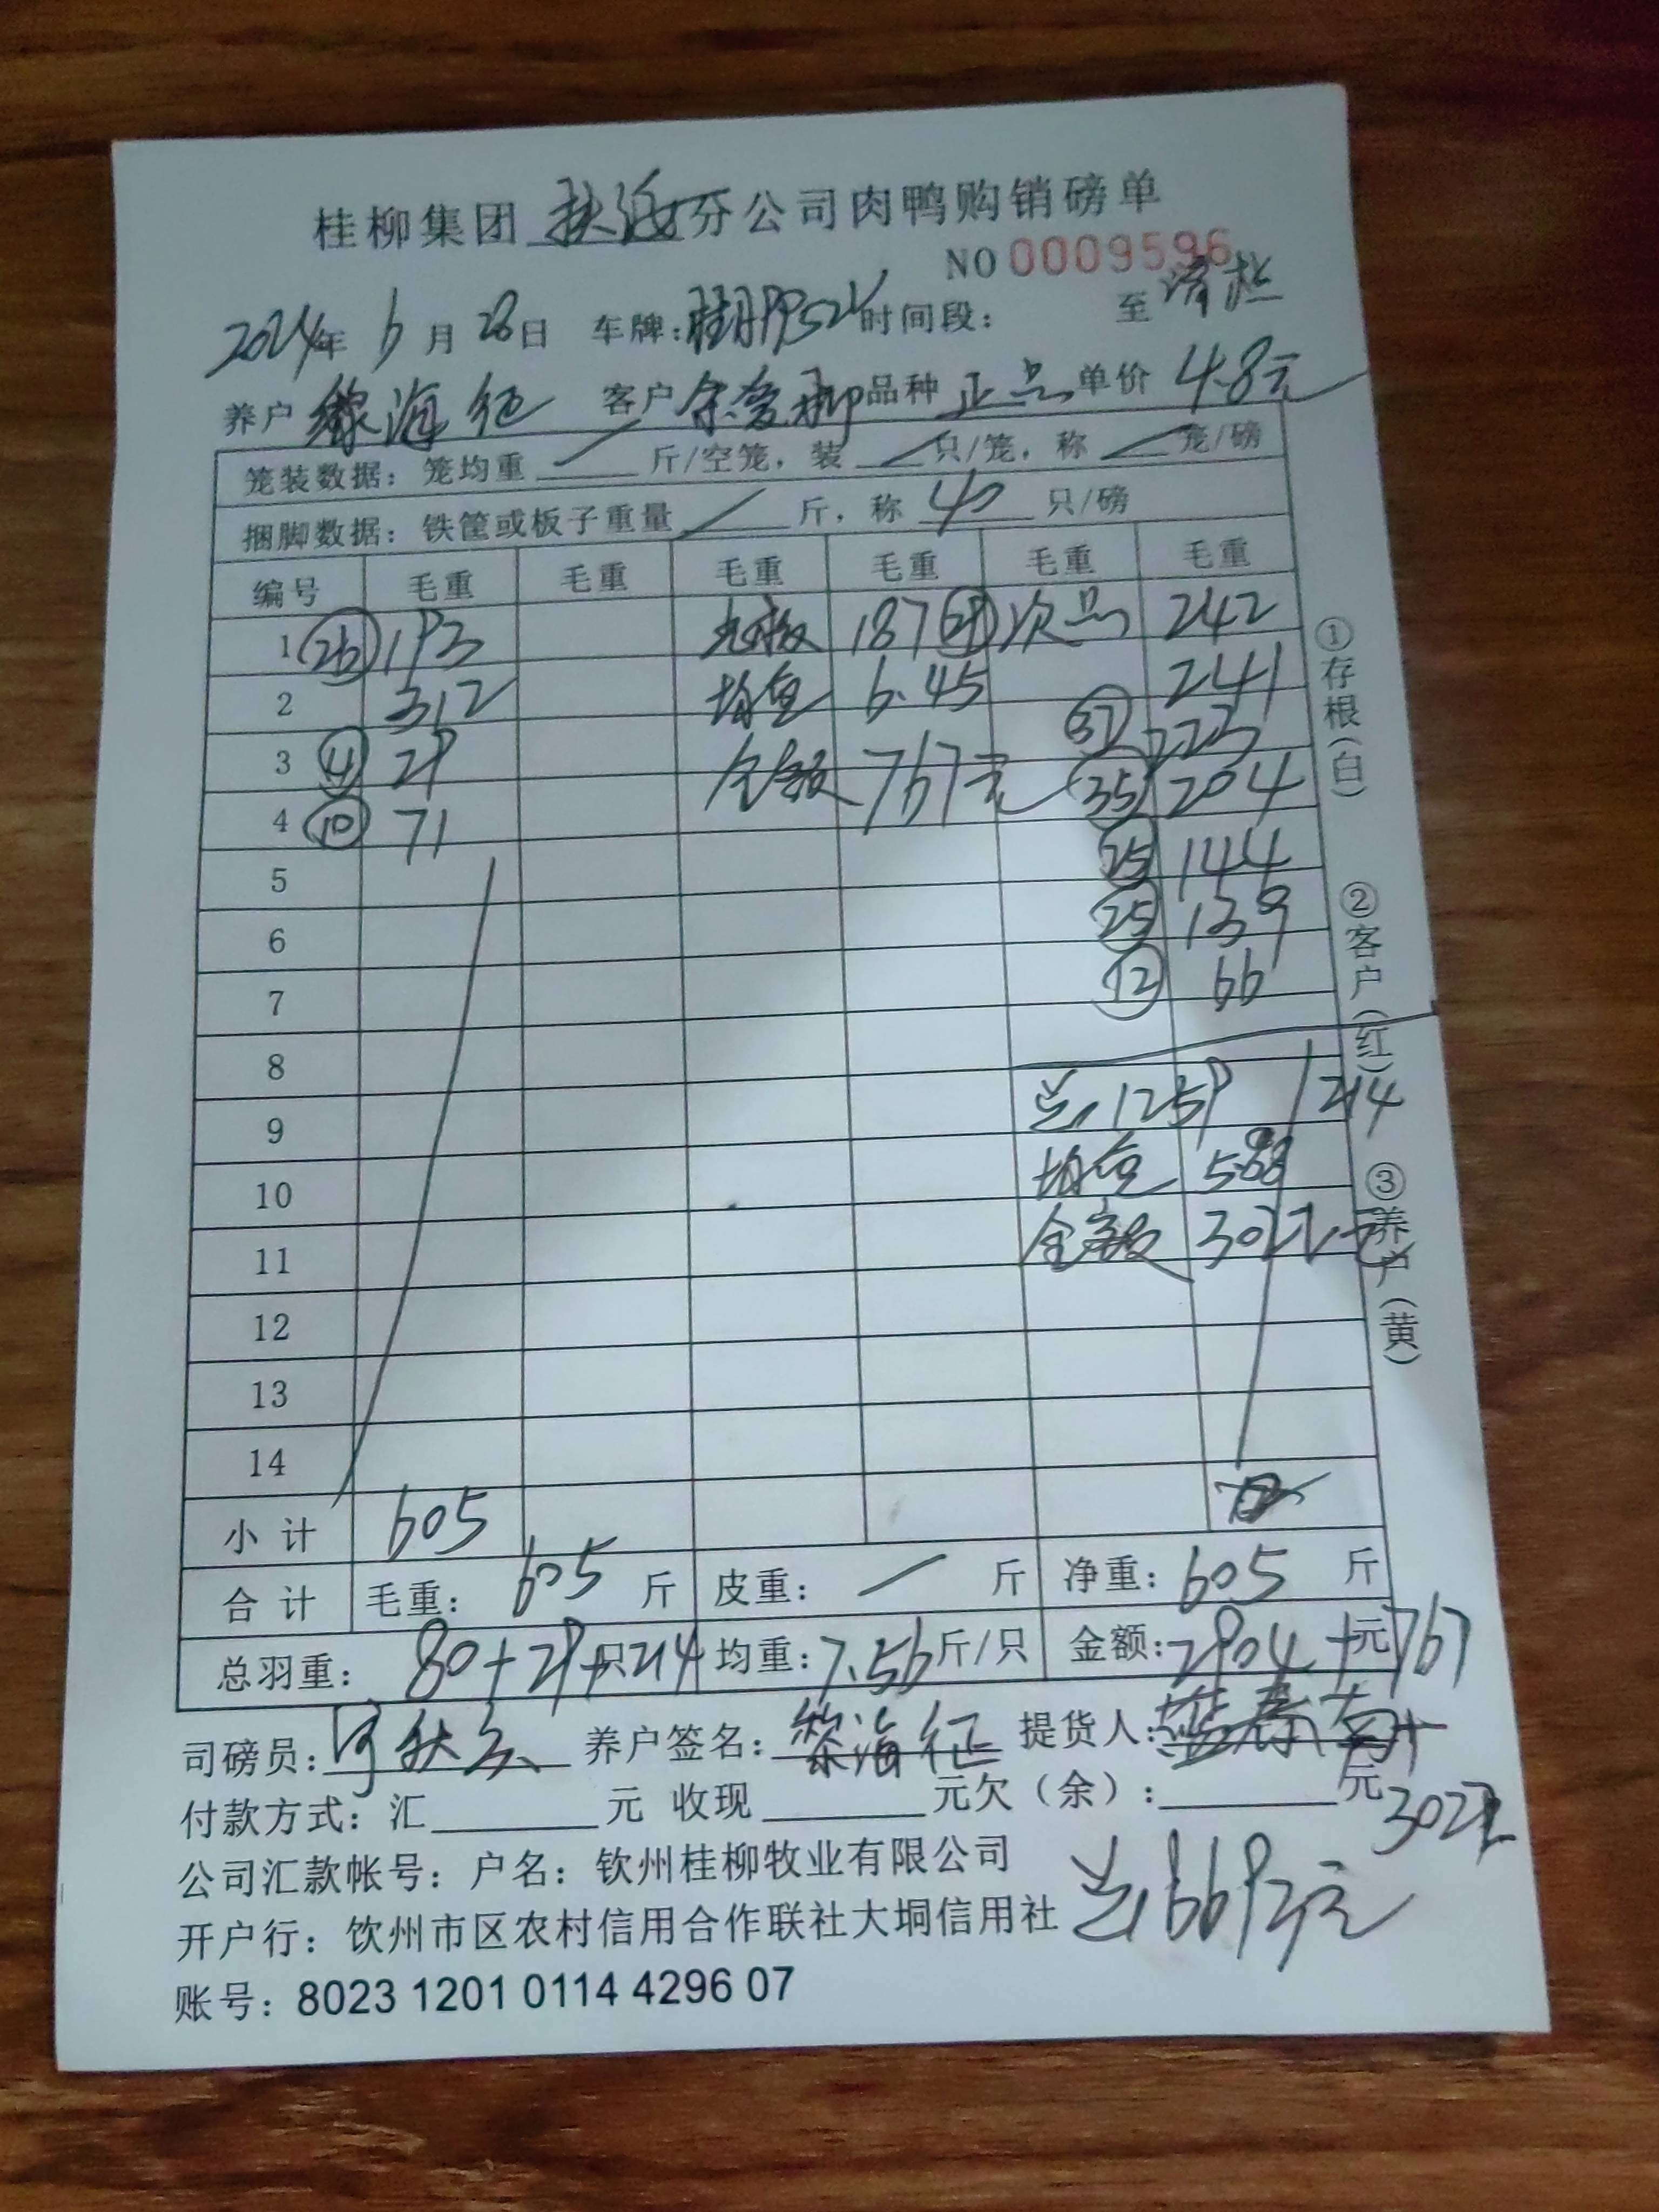 桂柳集团 扶海 分公司肉鸭购销磅单
NO 0009596
2024年 6月 28日 车牌: 时间段: 至 清栏
养户 黎海征 客户 余爱柳 品种 正品 单价 4.8元
笼装数据：笼均重 / 斤/空笼，装 / 只/笼，称 / 笼/磅
捆脚数据：铁筐或板子重量 / 斤，称 40 只/磅
编号 毛重 毛重 毛重 毛重 毛重 毛重
1 (26) 193 187 (29) 次品 242
2 312 均重 6.45 241
3 (4) 29 金额 767元 (37) 223
4 (10) 71 (35) 204
5 (25) 144
6 (25) 139
7 (12) 66
8
9 总 1259 214
10 均重 5.88
11 金额 3022元
12
13
14
小计 605
合计 毛重: 605 斤 皮重: / 斤 净重: 605 斤
总羽重: 80+29+只214 均重: 7.56 斤/只 金额: 2904 +元 767
司磅员: 养户签名: 黎海征 提货人: +
付款方式: 汇 元 收现 元欠（余）: 元 3022
公司汇款帐号: 户名: 钦州桂柳牧业有限公司
总 6692元
开户行: 钦州市区农村信用合作联社大垌信用社
账号: 8023 1201 0114 4296 07
①存根（白） ②客户（红） ③养户（黄）